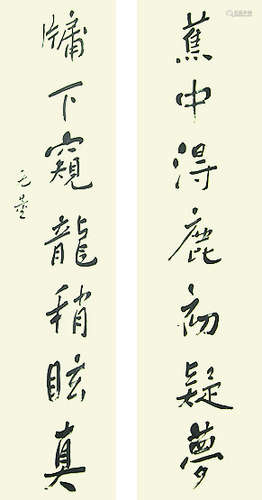 蕉中得鹿初疑夢
牖下窺龍稍眩真